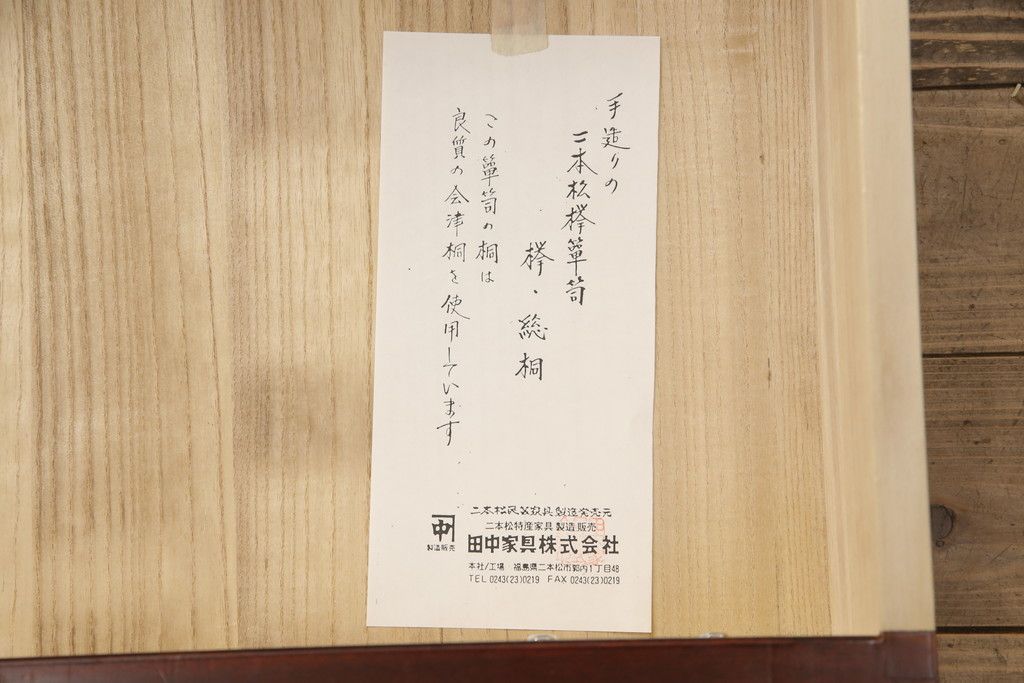 手造りの
二本松欅簞笥
欅・総桐
この簞笥の桐は
良質の会津桐を使用しています
二本松民芸家具製造発売元
二本松特産家具 製造 販売
田中家具株式会社
製造 販売
本社/工場 福島県二本松市郭内1丁目48
TEL 0243(23)0219 FAX 0243(23)0219